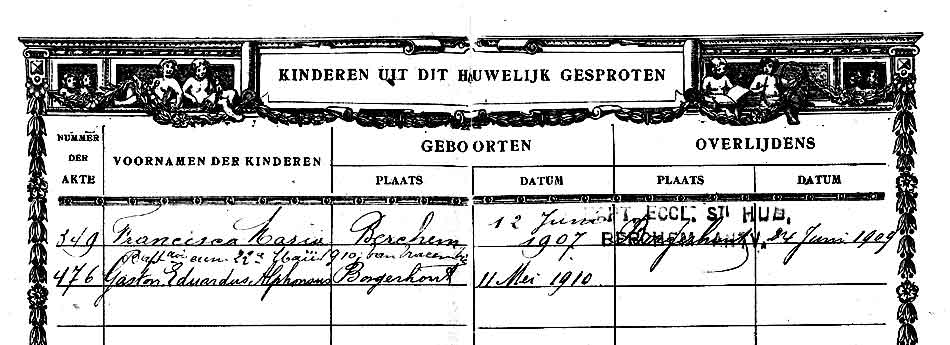 KINDEREN UIT DIT HUWELIJK GESPROTEN
NUMMER DER AKTE
VOORNAMEN DER KINDEREN
GEBOORTEN
OVERLIJDENS
PLAATS
DATUM
PLAATS
DATUM
349 Francisca Maria Berchem 12 Juni 1907 Borgerhout 24 Juni 1909
SPT. ECCL. St HUB.
BERCHEM
22a Maii 1910
476 Gaston Eduardus Alphonsus Borgerhout 11 Mei 1910